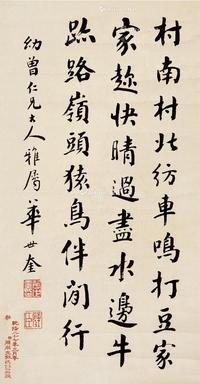 村南村北紡車鳴打豆家
家趂快晴過盡水邊牛
跡路嶺頭猿鳥伴閒行
幼曾仁兄大人雅屬 華世奎